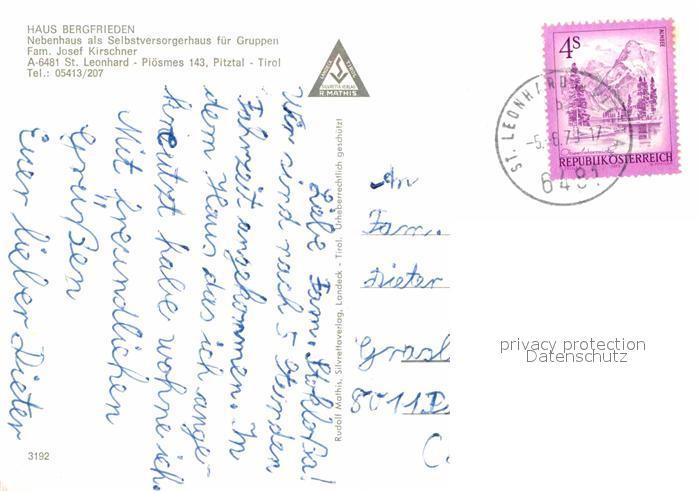 HAUS BERGFRIEDEN
Nebenhaus als Selbstversorgerhaus für Gruppen
Fam. Josef Kirschner
A-6481 St. Leonhard - Piösmes 143, Pitztal - Tirol
Tel.: 05413/207
LANDECK TIROL
SILVRETTA VERLAG
R. MATHIS
4S
ALMSEE
REPUBLIK ÖSTERREICH
ST. LEONHARD
b
6481
Rudolf Mathis, Silvrettaverlag, Landeck - Tirol. Urheberrechtlich geschützt
Liebe Fam.
Wir sind nach 5 Stunden
Fahrzeit angekommen. In
dem Haus das ich ange-
kreutzt habe wohne ich.
Mit freundlichen
Grüßen
Euer lieber Dieter
An
Fam.
Dieter
Grasl
8011
privacy protection
Datenschutz
3192